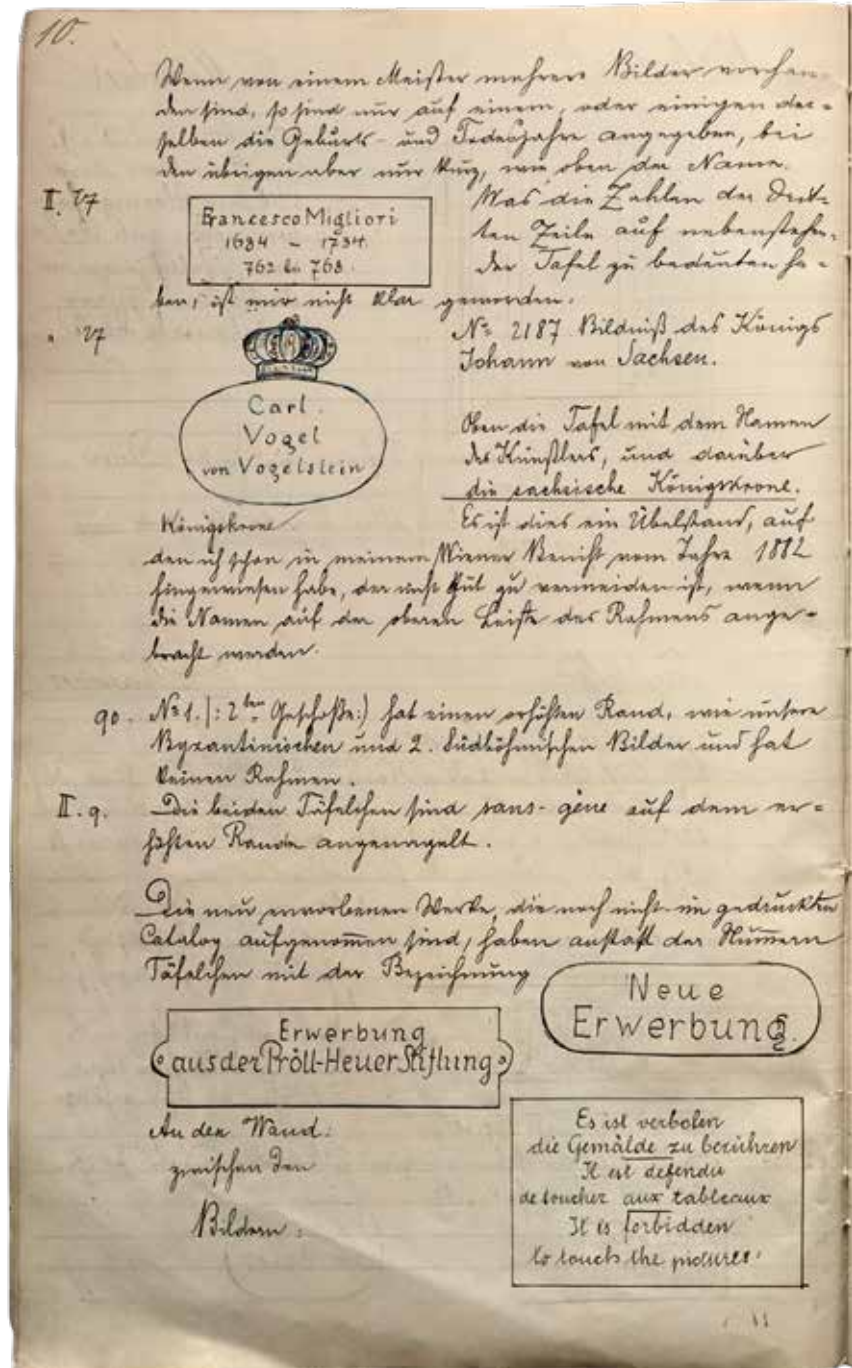 10.
Wenn von einem Meister mehrere Bilder vorhan-
den sind, so sind nur auf einem, oder einigen der-
selben die Geburts- und Todesjahre angegeben, bei
den übrigen aber nur kurz, wie oben der Name.
II. 27
Francesco Migliori
1684 – 1734.
762 bis 768.
Was die Zahlen der Drit-
ten Zeile auf nebenstehen-
der Tafel zu bedeuten ha-
ben, ist mir nicht klar geworden.
" 27
Carl
Vogel
von Vogelstein
Königskrone
№ 2187 Bildniß des Königs
Johann von Sachsen.
Oben die Tafel mit dem Namen
des Künstlers, und darüber
die sächsische Königskrone.
Es ist dies ein Übelstand, auf
den ich schon in meinem Wiener Bericht vom Jahre 1882
hingewiesen habe, der nicht gut zu vermeiden ist, wenn
die Namen auf der oberen Leiste des Rahmens ange-
bracht werden.
90. № 1. |: 2ten Geschoße:) hat einen erhöhten Rand, wie unsere
Byzantinischen und 2. Südböhmischen Bilder und hat
keinen Rahmen.
II. 9. Die beiden Täfelchen sind sans-gêne auf dem er-
höhten Rande angenagelt.
Die neu erworbenen Werke, die noch nicht im gedruckten
Catalog aufgenommen sind, haben anstatt der Nummern
Täfelchen mit der Bezeichnung
Neue
Erwerbung
Erwerbung
aus der Pröll-Heuer Stiftung
An der Wand:
zwischen den
Bildern:
Es ist verboten
die Gemälde zu berühren
Il est defendu
de toucher aux tableaux
It is forbidden
to touch the pictures